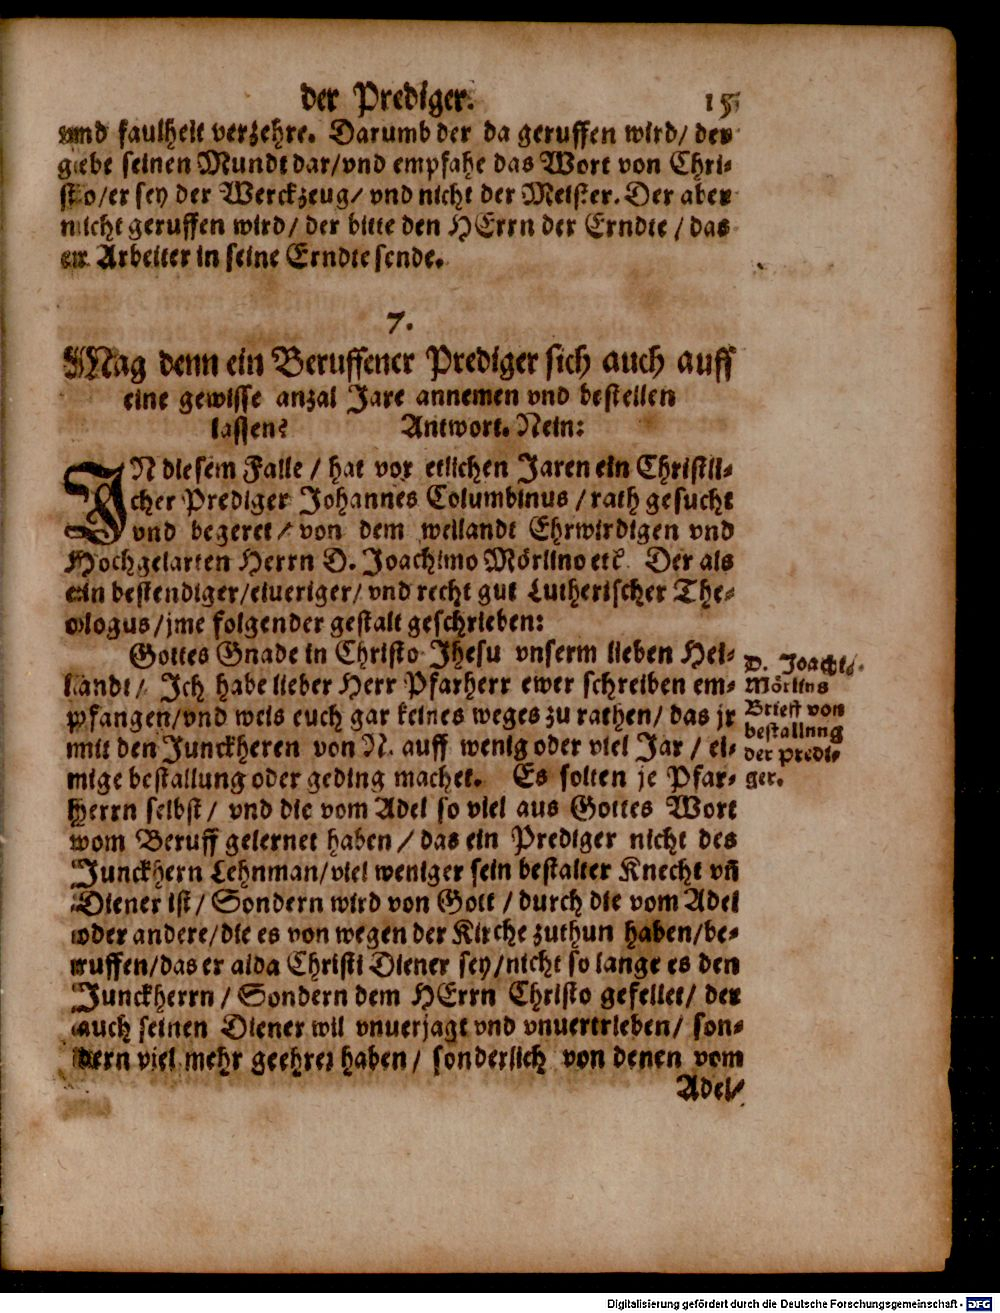 der Prediger. 15
vnd faulheit verzehre. Darumb der da geruffen wird/ der
gebe seinen Mundt dar/vnd empfahe das Wort von Chri-
sto/er sey der Werckzeug/ vnd nicht der Meister. Der aber
nicht geruffen wird/ der bitte den HErrn der Erndte / das
er Arbeiter in seine Erndte sende.
7.
Mag denn ein Beruffener Prediger sich auch auff
eine gewisse anzal Jare annemen vnd bestellen
lassen? Antwort. Nein:
IN diesem Falle / hat vor etlichen Jaren ein Christli-
cher Prediger Johannes Columbinus / rath gesucht
vnd begeret / von dem weilandt Ehrwirdigen vnd
Hochgelarten Herrn D. Joachimo Mörlino etc. Der als
ein bestendiger/eiueriger/ vnd recht gut Lutherischer The-
ologus/jme folgender gestalt geschrieben:
Gottes Gnade in Christo Jhesu vnserm lieben Hei-
landt/ Ich habe lieber Herr Pfarherr ewer schreiben em-
pfangen/vnd weis euch gar keines weges zu rathen/ das jr
mit den Junckheren von N. auff wenig oder viel Jar / ei-
nige bestallung oder geding machet. Es solten je Pfar-
herrn selbst/ vnd die vom Adel so viel aus Gottes Wort
vom Beruff gelernet haben / das ein Prediger nicht des
Junckhern Lehnman/viel weniger sein bestalter Knecht vñ
Diener ist/ Sondern wird von Gott / durch die vom Adel
oder andere/die es von wegen der Kirche zuthun haben/be-
ruffen/das er alda Christi Diener sey/nicht so lange es den
Junckherrn / Sondern dem HErrn Christo gefellet/ der
auch seinen Diener wil vnuerjagt vnd vnuertrieben/ son-
dern viel mehr geehret haben / sonderlich von denen vom
Adel/
D. Joachi.
Mörlins
Brieff von
bestallnng
der predi-
ger.
Digitalisierung gefördert durch die Deutsche Forschungsgemeinschaft - DFG